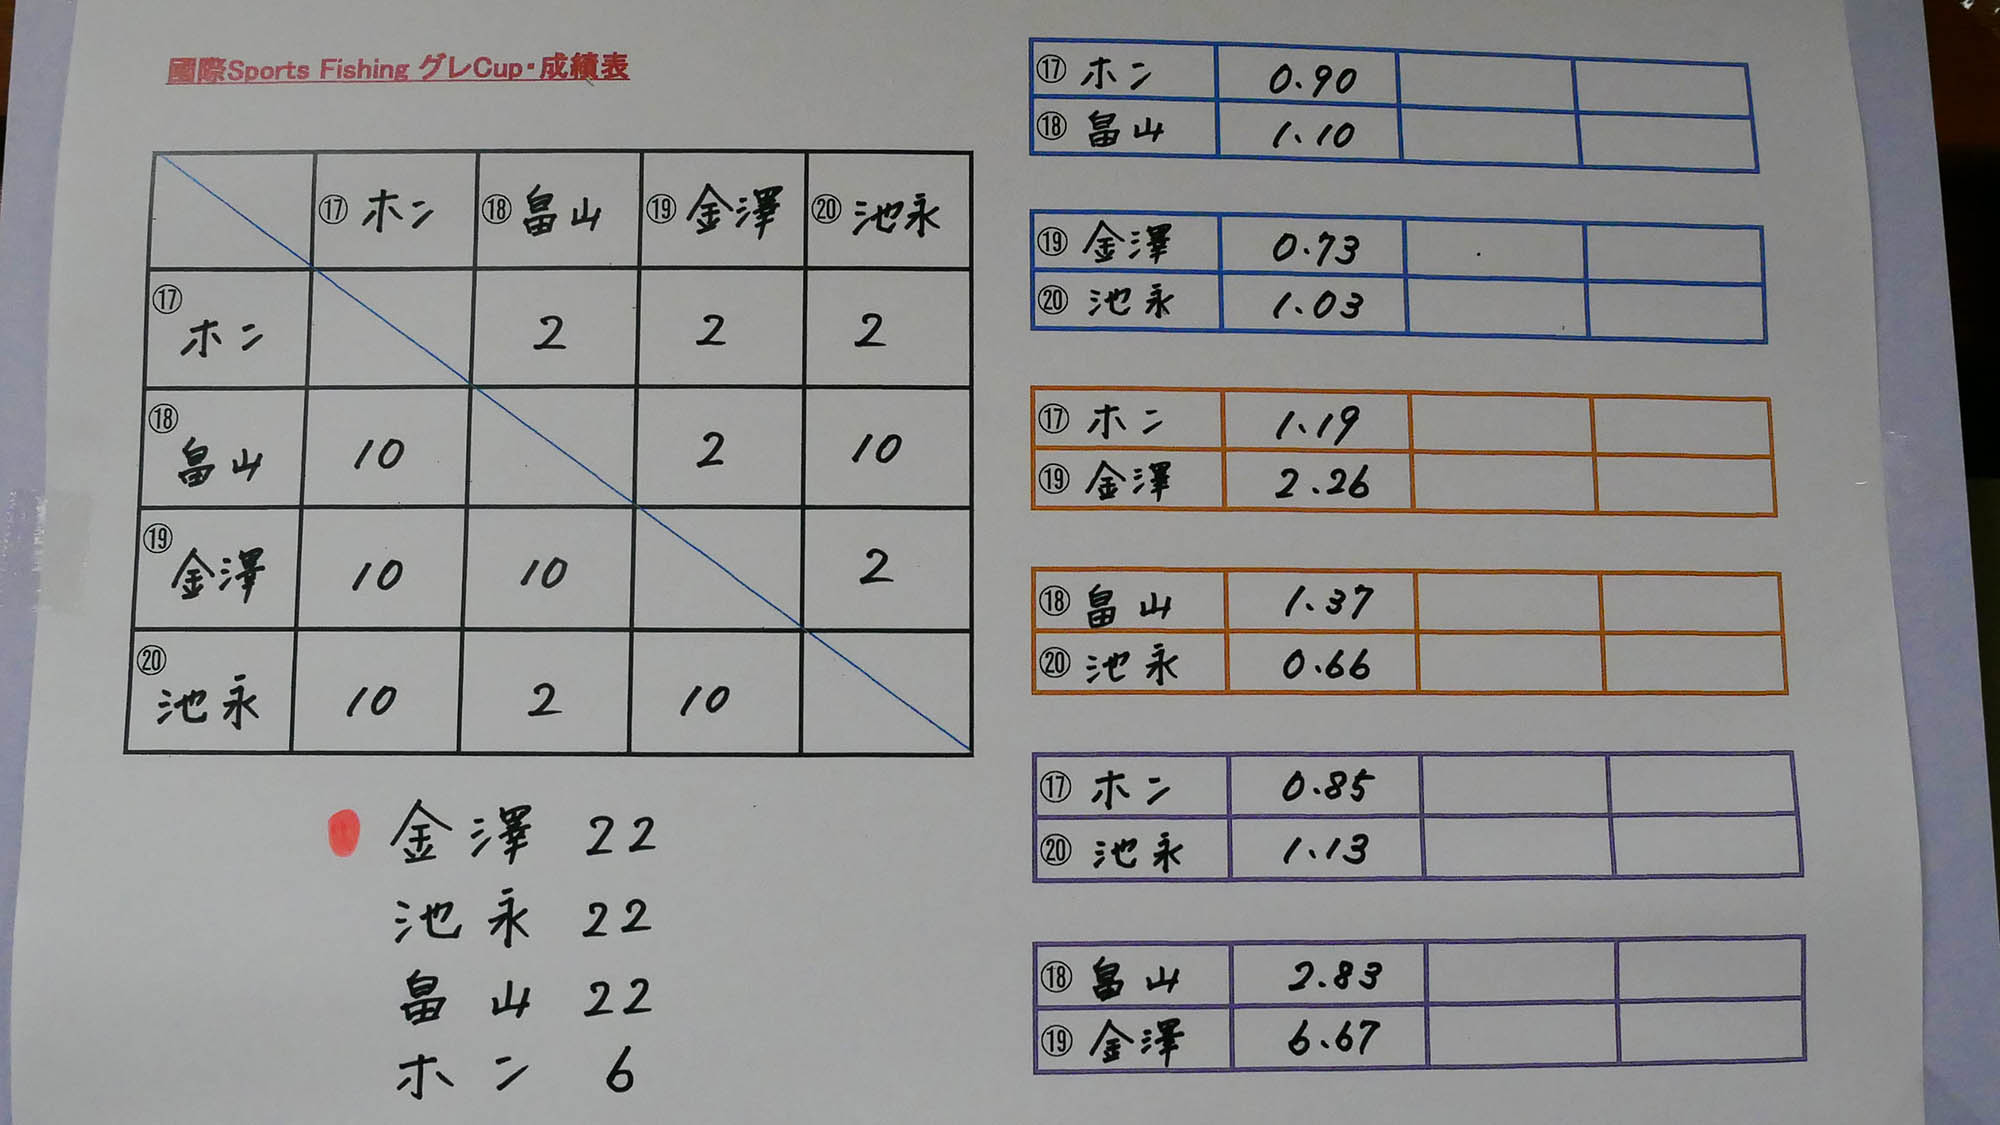 國際Sports Fishing グレCup・成績表
⑰ ホン ⑱ 畠山 ⑲ 金澤 ⑳ 池永
⑰ ホン 2 2 2
⑱ 畠山 10 2 10
⑲ 金澤 10 10 2
⑳ 池永 10 2 10
金澤 22
池永 22
畠山 22
ホン 6
⑰ ホン 0.90
⑱ 畠山 1.10
⑲ 金澤 0.73
⑳ 池永 1.03
⑰ ホン 1.19
⑲ 金澤 2.26
⑱ 畠山 1.37
⑳ 池永 0.66
⑰ ホン 0.85
⑳ 池永 1.13
⑱ 畠山 2.83
⑲ 金澤 6.67